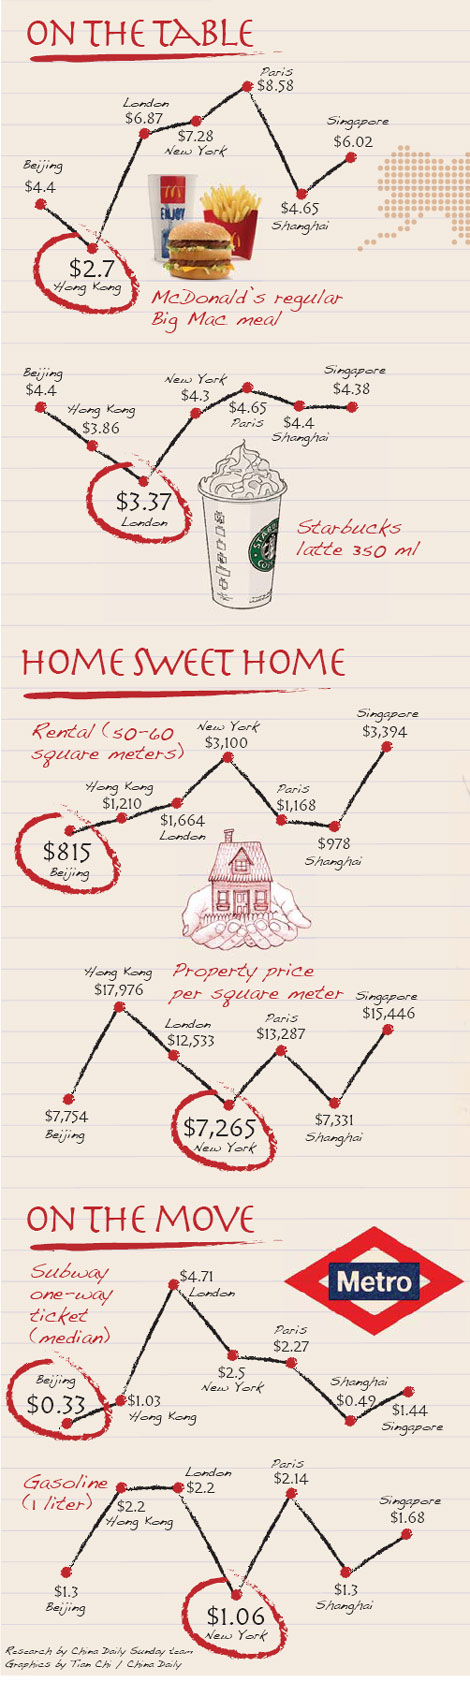 ON THE TABLE
Paris
$8.58
London
$6.87
$7.28
New York
Singapore
$6.02
Beijing
$4.4
$4.65
Shanghai
$2.7
Hong Kong
ENJOY
McDonald's regular
Big Mac meal
Beijing
$4.4
Hong Kong
$3.86
New York
$4.3
$4.65
Paris
$4.4
Shanghai
Singapore
$4.38
$3.37
London
Starbucks
latte 350 ml
HOME SWEET HOME
Rental (50-60
square meters)
New York
$3,100
Singapore
$3,394
Hong Kong
$1,210
$1,664
London
Paris
$1,168
$978
Shanghai
$815
Beijing
Property price
per square meter
Hong Kong
$17,976
London
$12,533
Paris
$13,287
Singapore
$15,446
$7,754
Beijing
$7,265
New York
$7,331
Shanghai
ON THE MOVE
Subway
one-way
ticket
(median)
Metro
$4.71
London
Paris
$2.27
$2.5
New York
Beijing
$0.33
$1.03
Hong Kong
Shanghai
$0.49
$1.44
Singapore
Gasoline
(1 liter)
London
$2.2
$2.2
Hong Kong
Paris
$2.14
Singapore
$1.68
$1.3
Beijing
$1.06
New York
$1.3
Shanghai
Research by China Daily Sunday team
Graphics by Tian Chi / China Daily